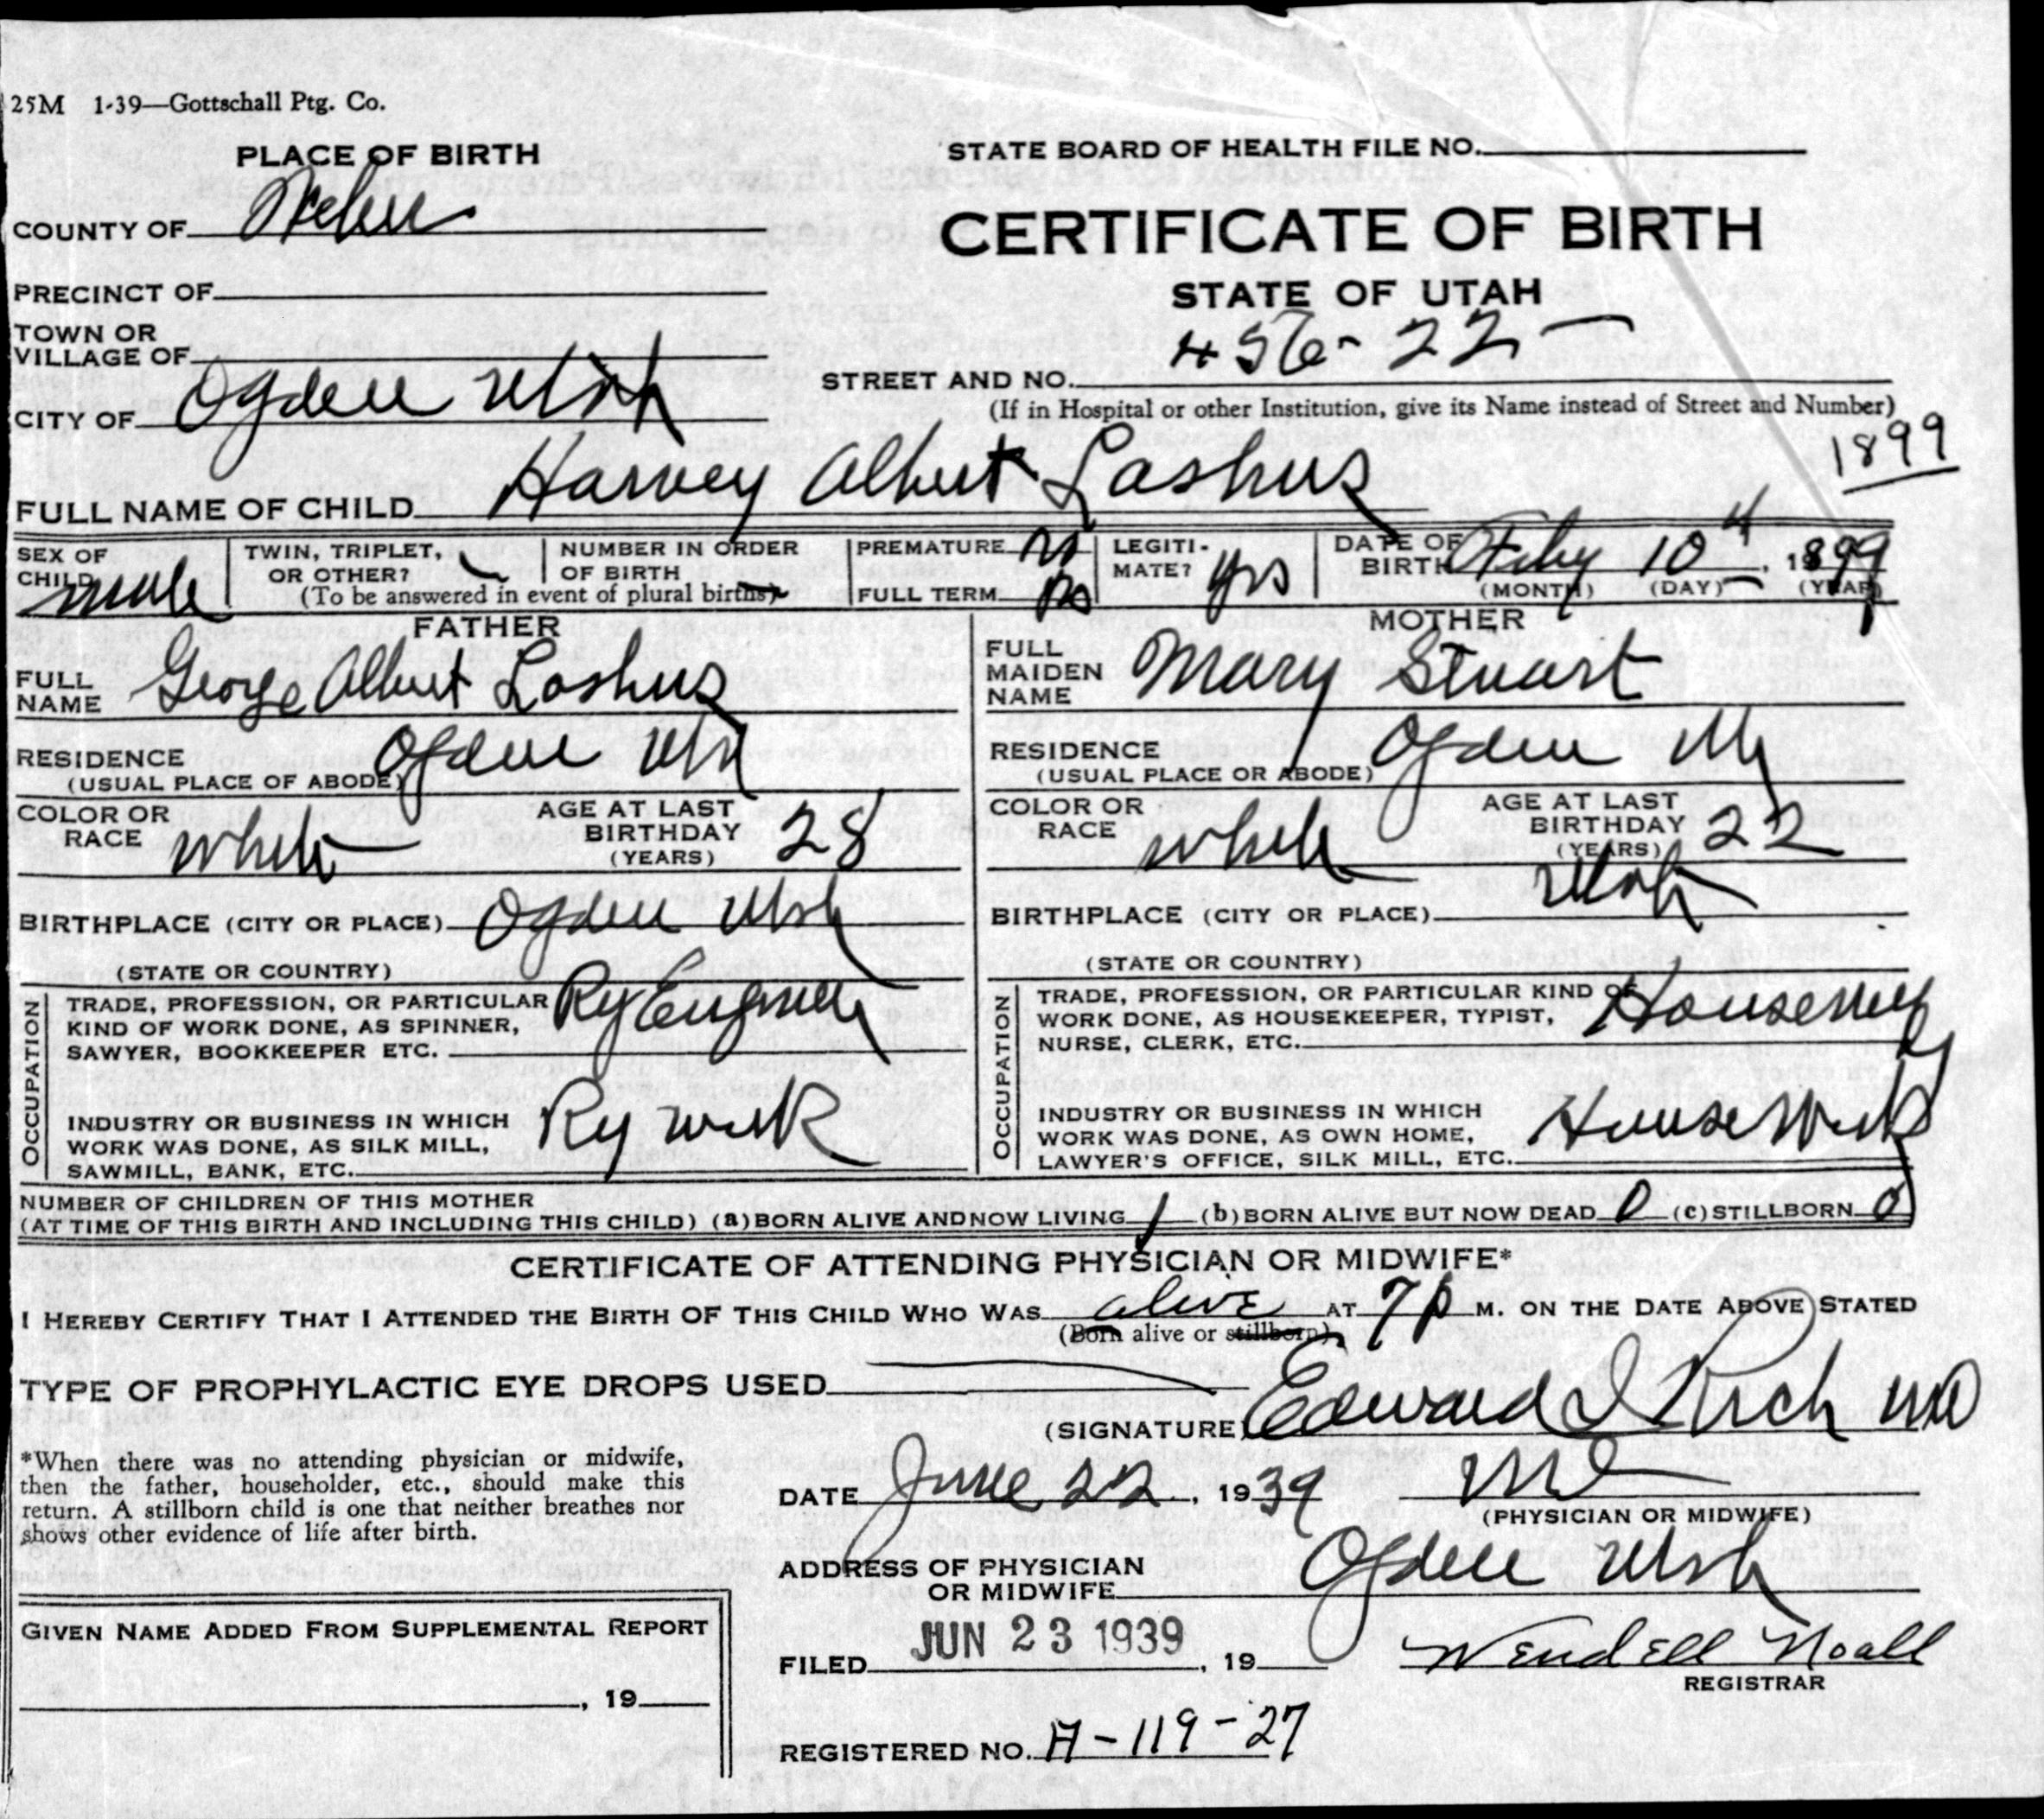 25M 1-39—Gottschall Ptg. Co.
PLACE OF BIRTH
STATE BOARD OF HEALTH FILE NO.
COUNTY OF Weber
CERTIFICATE OF BIRTH
PRECINCT OF
STATE OF UTAH
TOWN OR
VILLAGE OF
STREET AND NO. 456-22
(If in Hospital or other Institution, give its Name instead of Street and Number)
CITY OF Ogden Utah
1899
FULL NAME OF CHILD Harvey Albert Lashus
SEX OF CHILD male
TWIN, TRIPLET, OR OTHER?
NUMBER IN ORDER OF BIRTH
(To be answered in event of plural births)
PREMATURE no
FULL TERM
LEGITI-
MATE? yes
DATE OF BIRTH Feby 10 1899
(MONTH) (DAY) (YEAR)
FATHER
FULL NAME George Albert Lashus
RESIDENCE Ogden Utah
(USUAL PLACE OF ABODE)
COLOR OR RACE white
AGE AT LAST BIRTHDAY (YEARS) 28
BIRTHPLACE (CITY OR PLACE) Ogden Utah
(STATE OR COUNTRY)
OCCUPATION
TRADE, PROFESSION, OR PARTICULAR
KIND OF WORK DONE, AS SPINNER,
SAWYER, BOOKKEEPER ETC. Ry Engineer
INDUSTRY OR BUSINESS IN WHICH
WORK WAS DONE, AS SILK MILL,
SAWMILL, BANK, ETC. Ry work
MOTHER
FULL MAIDEN NAME Mary Stuart
RESIDENCE Ogden
(USUAL PLACE OR ABODE)
COLOR OR RACE white
AGE AT LAST BIRTHDAY (YEARS) 22
BIRTHPLACE (CITY OR PLACE) Utah
(STATE OR COUNTRY)
OCCUPATION
TRADE, PROFESSION, OR PARTICULAR KIND OF
WORK DONE, AS HOUSEKEEPER, TYPIST,
NURSE, CLERK, ETC. Housewife
INDUSTRY OR BUSINESS IN WHICH
WORK WAS DONE, AS OWN HOME,
LAWYER'S OFFICE, SILK MILL, ETC. House Work
NUMBER OF CHILDREN OF THIS MOTHER
(AT TIME OF THIS BIRTH AND INCLUDING THIS CHILD) (a) BORN ALIVE AND NOW LIVING 1 (b) BORN ALIVE BUT NOW DEAD 0 (c) STILLBORN 0
CERTIFICATE OF ATTENDING PHYSICIAN OR MIDWIFE*
I HEREBY CERTIFY THAT I ATTENDED THE BIRTH OF THIS CHILD WHO WAS alive AT 7 p M. ON THE DATE ABOVE STATED
(Born alive or stillborn)
TYPE OF PROPHYLACTIC EYE DROPS USED
(SIGNATURE) Edward I Rich MD
*When there was no attending physician or midwife,
then the father, householder, etc., should make this
return. A stillborn child is one that neither breathes nor
shows other evidence of life after birth.
DATE June 22, 1939
MD
(PHYSICIAN OR MIDWIFE)
ADDRESS OF PHYSICIAN
OR MIDWIFE Ogden Utah
GIVEN NAME ADDED FROM SUPPLEMENTAL REPORT
, 19
FILED JUN 23 1939, 19
Wendell Noall
REGISTRAR
REGISTERED NO. A-119-27